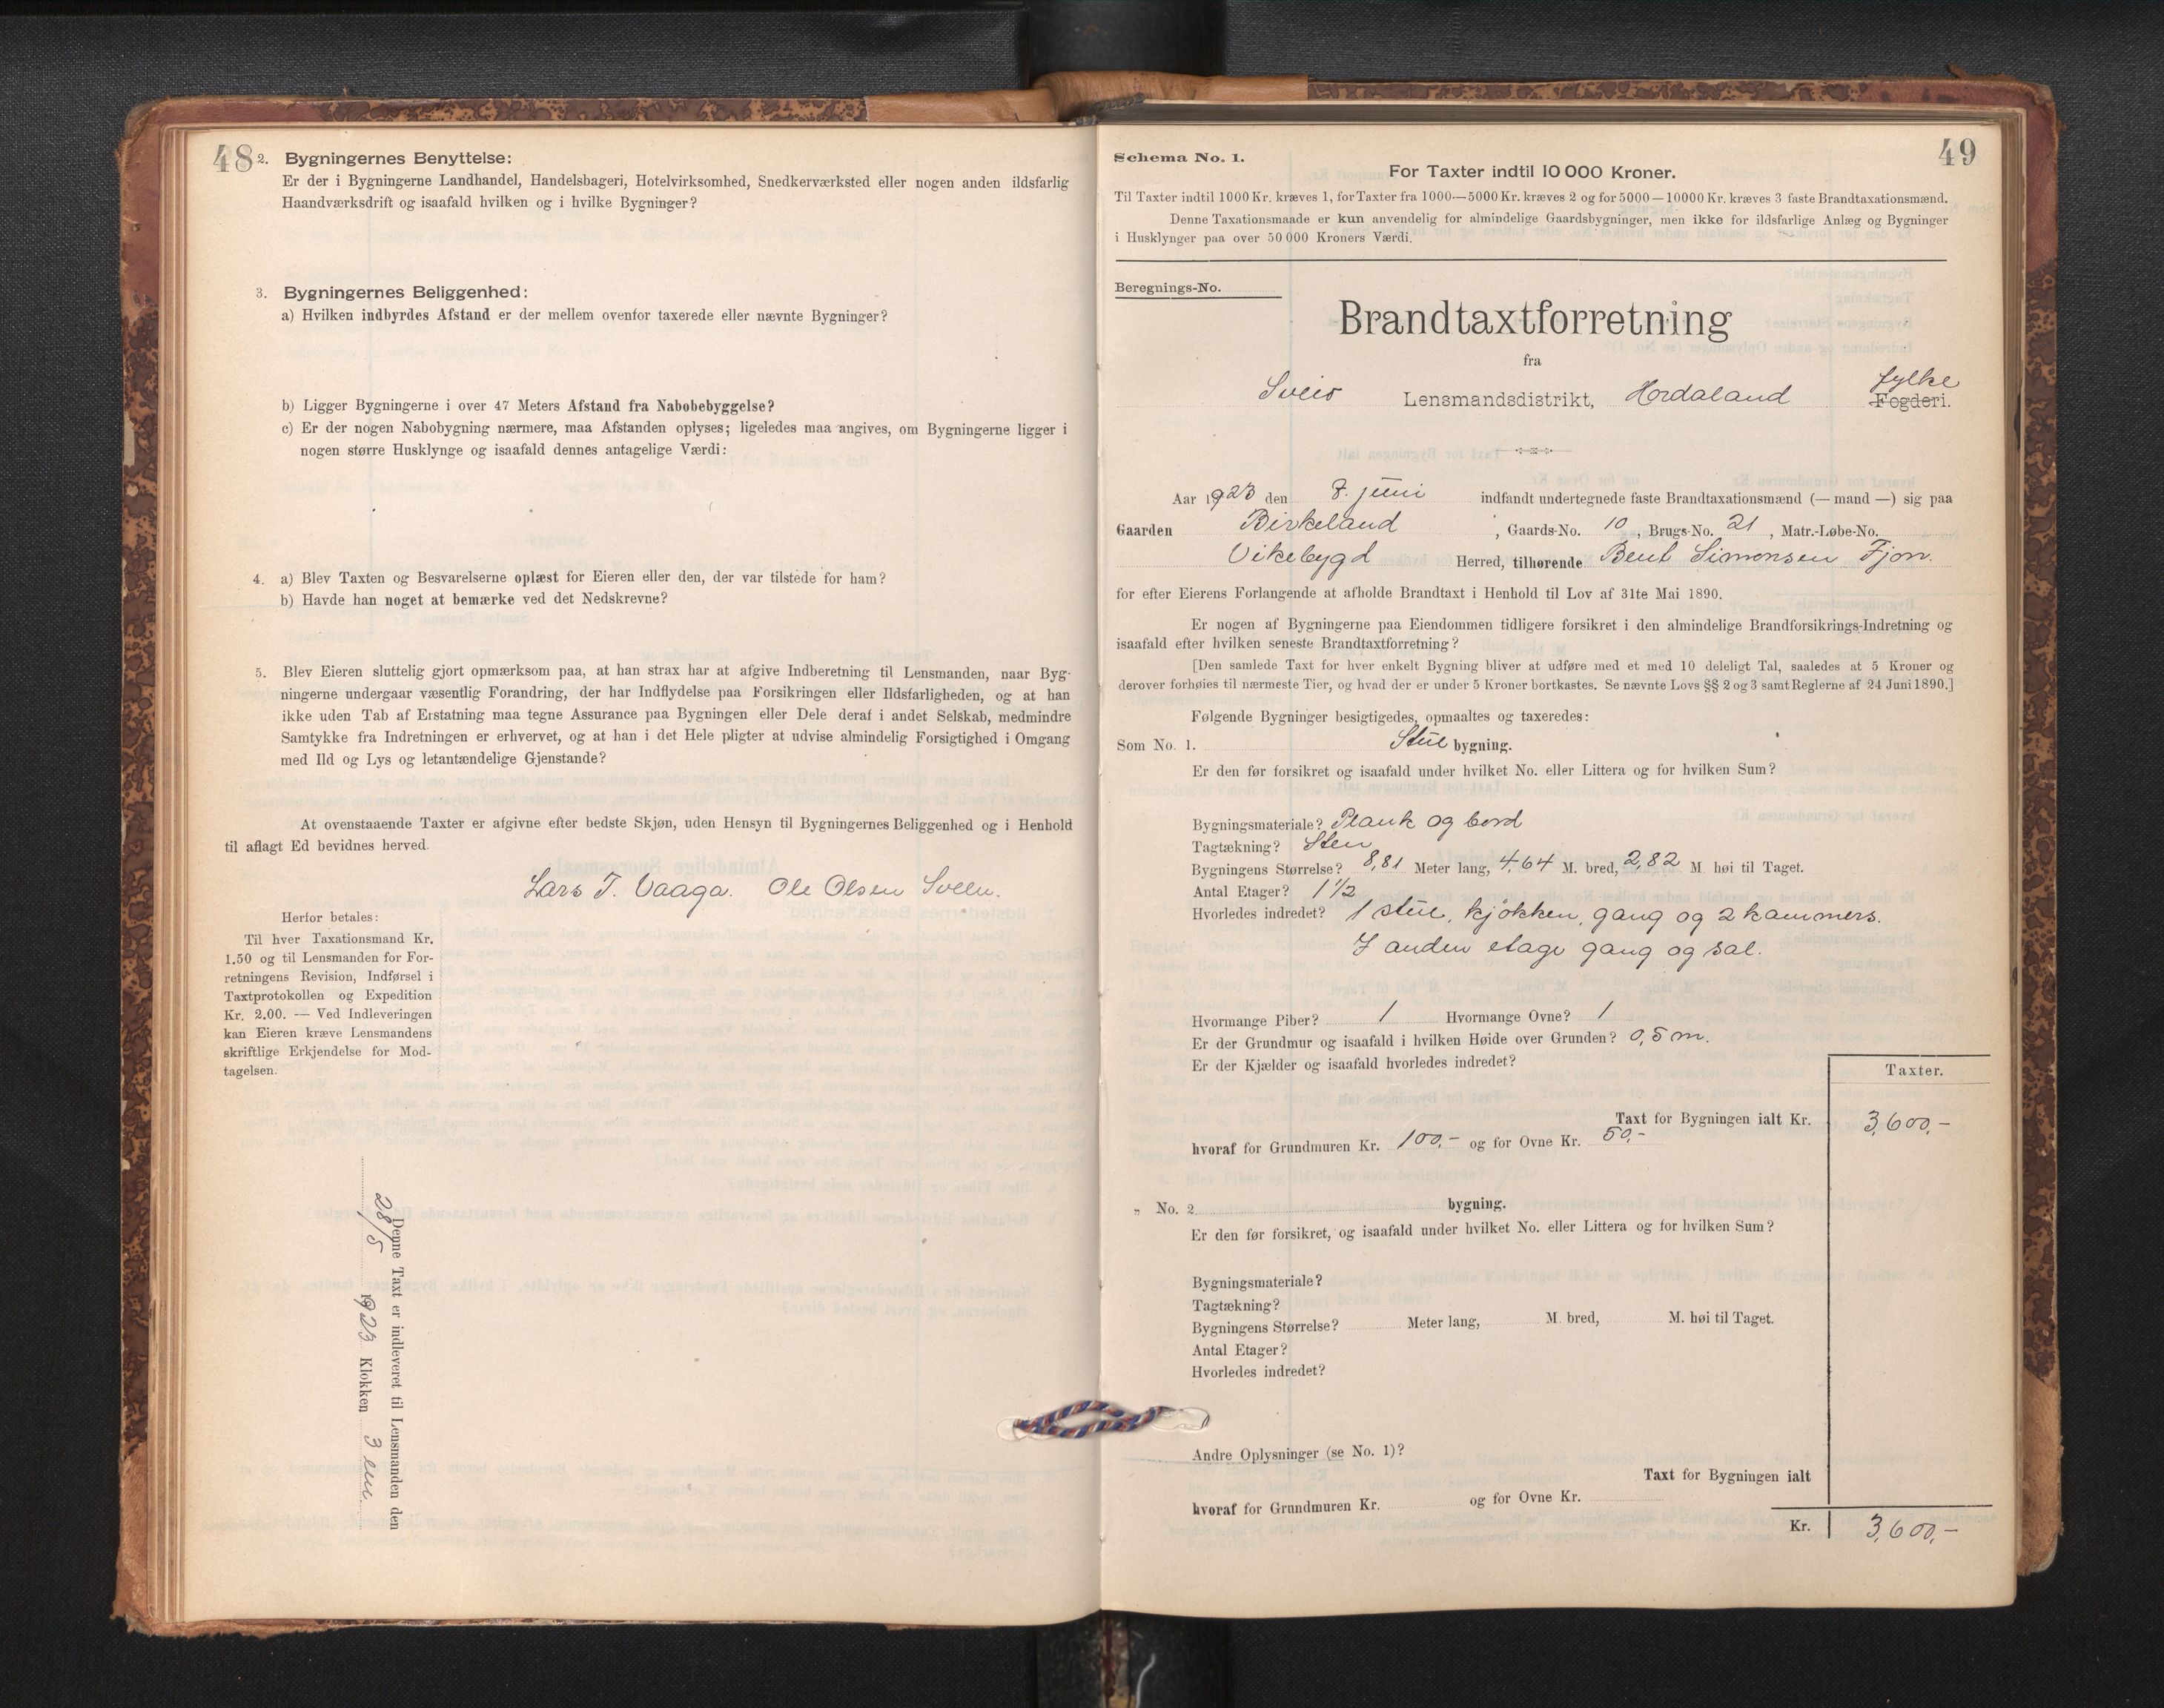 48
2. Bygningernes Benyttelse:
Er der i Bygningerne Landhandel, Handelsbageri, Hotelvirksomhed, Snedkerværksted eller nogen anden ildsfarlig
Haandværksdrift og isaafald hvilken og i hvilke Bygninger?
3. Bygningernes Beliggenhed:
a) Hvilken indbyrdes Afstand er der mellem ovenfor taxerede eller nævnte Bygninger?
b) Ligger Bygningerne i over 47 Meters Afstand fra Nabobebyggelse?
c) Er der nogen Nabobygning nærmere, maa Afstanden oplyses; ligeledes maa angives, om Bygningerne ligger i
nogen større Husklynge og isaafald dennes antagelige Værdi:
4. a) Blev Taxten og Besvarelserne oplæst for Eieren eller den, der var tilstede for ham?
b) Havde han noget at bemærke ved det Nedskrevne?
5. Blev Eieren sluttelig gjort opmærksom paa, at han strax har at afgive Indberetning til Lensmanden, naar Byg-
ningerne undergaar væsentlig Forandring, der har Indflydelse paa Forsikringen eller Ildsfarligheden, og at han
ikke uden Tab af Erstatning maa tegne Assurance paa Bygningen eller Dele deraf i andet Selskab, medmindre
Samtykke fra Indretningen er erhvervet, og at han i det Hele pligter at udvise almindelig Forsigtighed i Omgang
med Ild og Lys og letantændelige Gjenstande?
At ovenstaaende Taxter er afgivne efter bedste Skjøn, uden Hensyn til Bygningernes Beliggenhed og i Henhold
til aflagt Ed bevidnes herved.
Lars T. Vaaga. Ole Olsen Sveen.
Herfor betales:
Til hver Taxationsmand Kr.
1.50 og til Lensmanden for For-
retningens Revision, Indførsel i
Taxtprotokollen og Expedition
Kr. 2.00. — Ved Indleveringen
kan Eieren kræve Lensmandens
skriftlige Erkjendelse for Mod-
tagelsen.
Denne Taxt er indleveret til Lensmanden den
28/5 1923 Klokken 3 em.
49
Schema No. 1.
For Taxter indtil 10 000 Kroner.
Til Taxter indtil 1000 Kr. kræves 1, for Taxter fra 1000—5000 Kr. kræves 2 og for 5000—10000 Kr. kræves 3 faste Brandtaxationsmænd.
Denne Taxationsmaade er kun anvendelig for almindelige Gaardsbygninger, men ikke for ildsfarlige Anlæg og Bygninger
i Husklynger paa over 50 000 Kroners Værdi.
Beregnings-No.
Brandtaxtforretning
fra
Sveio Lensmandsdistrikt, Hordaland Fogderi. fylke
Aar 1923 den 7. juni indfandt undertegnede faste Brandtaxationsmænd (— mand —) sig paa
Gaarden Birkeland, Gaards-No. 10, Brugs-No. 21, Matr.-Løbe-No.
Vikebygd Herred, tilhørende Bent Simonsen Fjon.
for efter Eierens Forlangende at afholde Brandtaxt i Henhold til Lov af 31te Mai 1890.
Er nogen af Bygningerne paa Eiendommen tidligere forsikret i den almindelige Brandforsikrings-Indretning og
isaafald efter hvilken seneste Brandtaxtforretning?
[Den samlede Taxt for hver enkelt Bygning bliver at udføre med et med 10 deleligt Tal, saaledes at 5 Kroner og
derover forhøies til nærmeste Tier, og hvad der er under 5 Kroner bortkastes. Se nævnte Lovs §§ 2 og 3 samt Reglerne af 24 Juni 1890.]
Følgende Bygninger besigtigedes, opmaaltes og taxeredes:
Som No. 1. Stue bygning.
Er den før forsikret og isaafald under hvilket No. eller Littera og for hvilken Sum?
Bygningsmateriale? Plank og bord
Tagtækning? Sten
Bygningens Størrelse? 8,81 Meter lang, 4,64 M. bred, 2,82 M høi til Taget.
Antal Etager? 1 1/2
Hvorledes indredet? 1 stue, kjøkken, gang og 2 kammers.
I anden etage gang og sal.
Hvormange Piber? 1 Hvormange Ovne? 1
Er der Grundmur og isaafald i hvilken Høide over Grunden? 0,5 m.
Er der Kjælder og isaafald hvorledes indredet?
Taxter.
Taxt for Bygningen ialt Kr. 3,600,-
hvoraf for Grundmuren Kr. 100,- og for Ovne Kr. 50,-
„ No. 2 bygning.
Er den før forsikret, og isaafald under hvilket No. eller Littera og for hvilken Sum?
Bygningsmateriale?
Tagtækning?
Bygningens Størrelse? Meter lang, M bred, M. høi til Taget.
Antal Etager?
Hvorledes indredet?
Andre Oplysninger (se No. 1)?
Taxt for Bygningen ialt
hvoraf for Grundmuren Kr. og for Ovne Kr.
Kr. 3,600,-